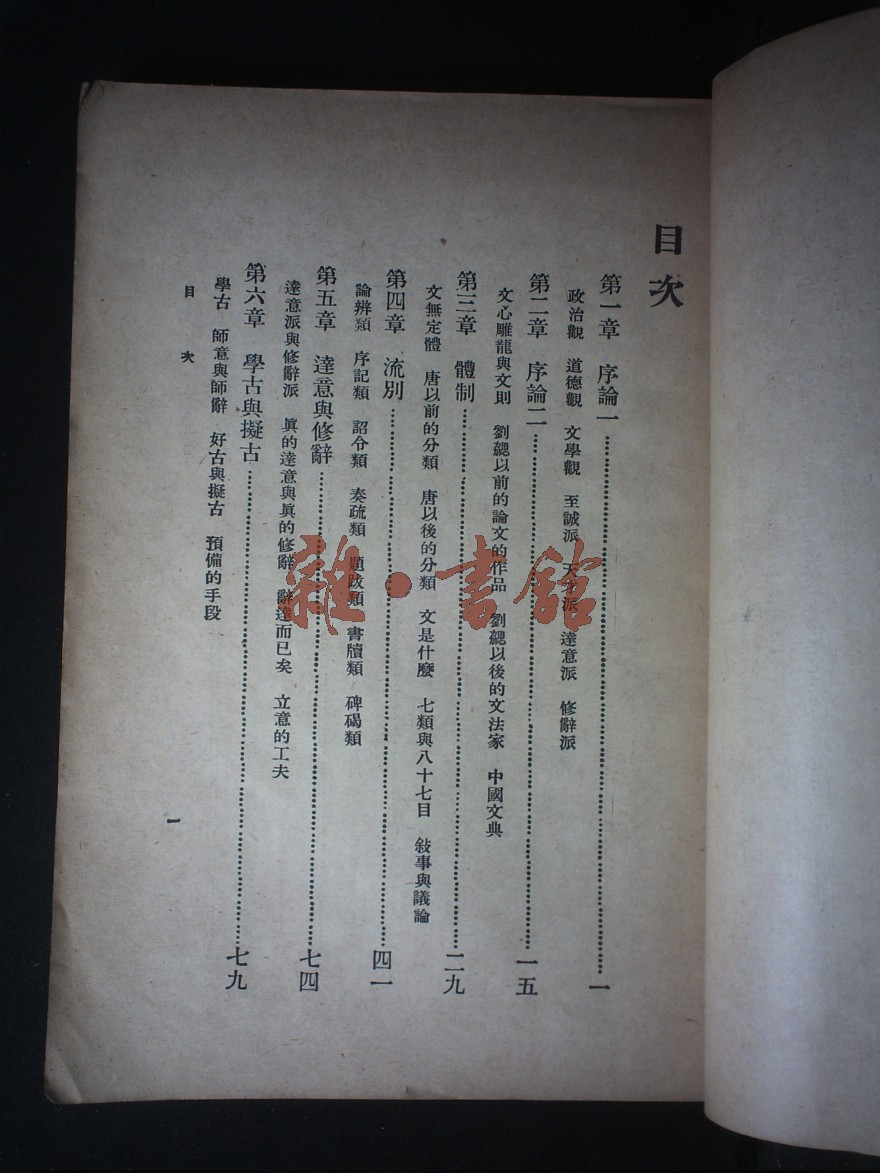 目次
第一章　序論一……一
政治觀　道德觀　文學觀　至誠派　天才派　達意派　修辭派
第二章　序論二……一五
文心雕龍與文則　劉勰以前的論文的作品　劉勰以後的文法家　中國文典
第三章　體制……二九
文無定體　唐以前的分類　唐以後的分類　文是什麼　七類與八十七目　敍事與議論
第四章　流別……四一
論辨類　序記類　詔令類　奏疏類　題跋類　書牘類　碑碣類
第五章　達意與修辭……七四
達意派與修辭派　眞的達意與眞的修辭　辭達而已矣　立意的工夫
第六章　學古與擬古……七九
學古　師意與師辭　好古與擬古　預備的手段
目　次
一
雜·書館